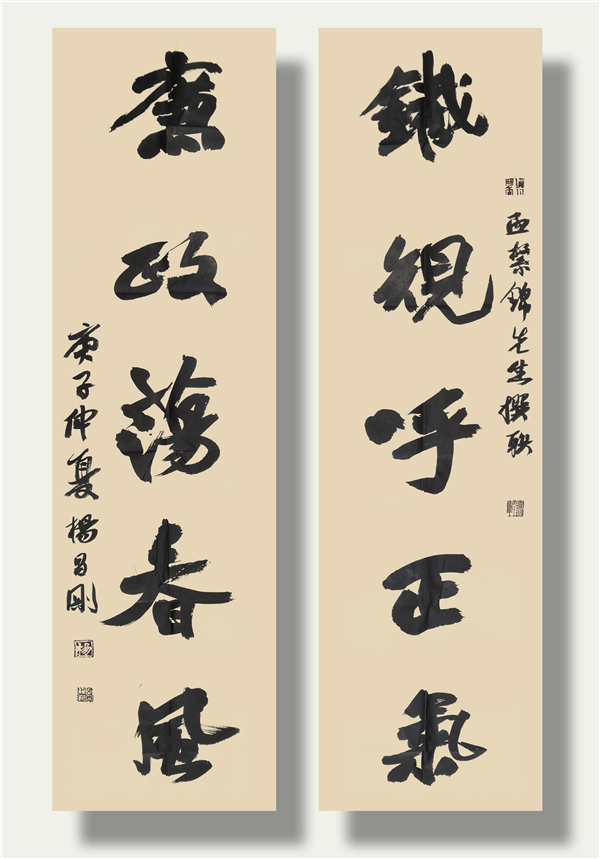 鐵規呼正氣
孟繁錦先生撰聯
廉政蕩春風
庚子仲夏楊昌剛